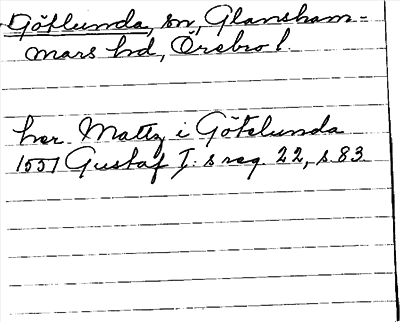 Götlunda, sn, Glansham=
mars hd, Örebro l.
her Matts i Götelunda
1557 Gustaf I:s reg 22, s. 83.